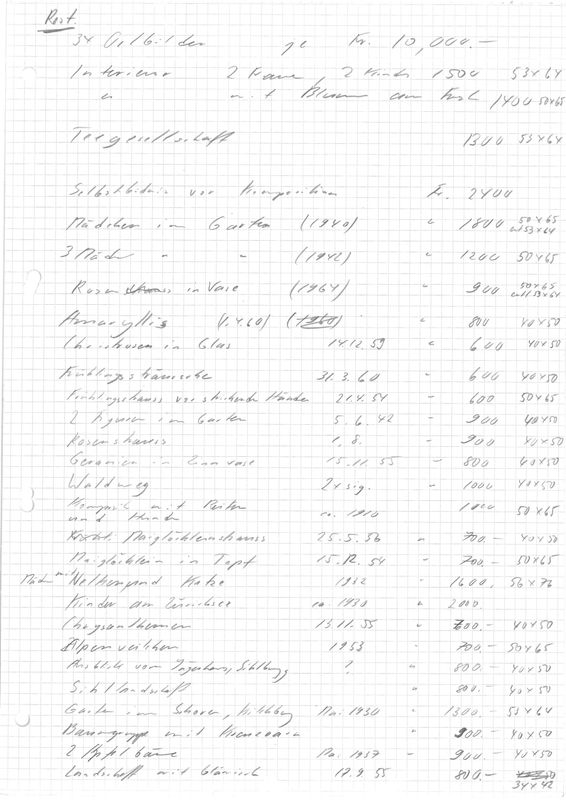 Rest.
34 Oelbilder ge Fr. 10,000.-
Interieur 2 Frauen, 2 Kinder 1500 53x64
" mit Blumen am 1400 50x65
Teegesellschaft 1300 53x64
Selbstbildnis vor Komposition Fr. 2400
Mädchen im Garten (1940) " 1800 50x65
53x64
3 Mädch " " (1942) " 1200 50x65
Rosen in Vase (1964) " 900 50x65
53x64
Amaryllis (1.4.60) (1960) " 800 40x50
Christrosen in Glas 14.12.59 " 600 40x50
Frühlingssträussche 31.3.60 - 600 40x50
Frühlingsstrauss vor 21.4.54 - 600 50x65
2 Figuren im Garten 5.6.42 - 900 40x50
Rosenstrauss 1.8. - 900 40x50
Geranien in Zinnvase 15.11.55 - 800 40x50
Waldweg 2x sig. - 1000 40x50
mit Reiter
und Hunde ca. 1910 1000 50x65
Maiglöckleinstrauss 25.5.56 " 700.- 40x50
Maiglöcklein in Topf 15.12.54 - 700.- 50x65
Mädch mit Nelken und Katze 1932 - 1600, 56x76
Kinder am Zürichsee ca. 1930 " 2000.
Chrysanthemen 13.11.55 " 700.- 40x50
Alpenveilchen 1953 - 700.- 50x65
Ausblick vom Jägerhaus, Sihlbrugg ? " 800.- 40x50
Sihllandschaft " 800.- 40x50
Garten im Schoren, Kilchberg Mai 1930 " 1300.- 53x64
Baumgruppe mit 900.- 40x50
2 Apfelbäume 1937 - 900.- 40x50
Landschaft mit 17.9.55 800.-
34x42